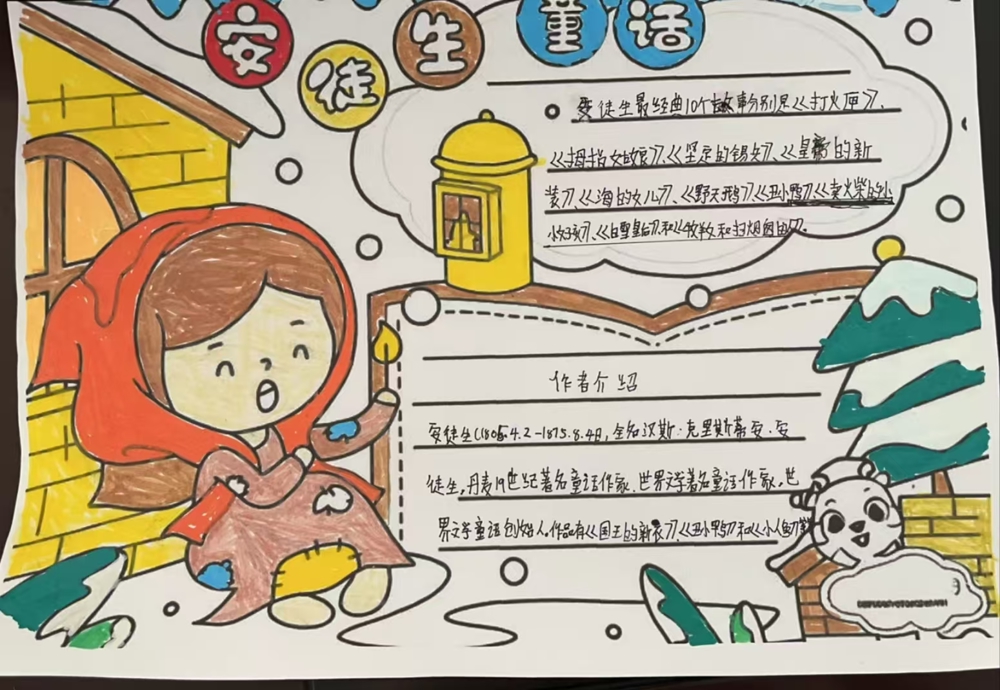 安徒生童话
安徒生最经典10个故事分别是《打火匣》、
《拇指姑娘》、《坚定的锡兵》、《皇帝的新
装》《海的女儿》、《野天鹅》《丑小鸭》《卖火柴的小
女孩》、《白雪皇后》和《牧羊女和扫烟囱的》.
作者介绍
安徒生(1805.4.2-1875.8.4日,全名汉斯·克里斯蒂安·安
徒生,丹麦19世纪著名童话作家、世界文学著名童话作家,世
界文学童话创始人。作品有《国王的新衣》、《丑小鸭》和《小人鱼》等